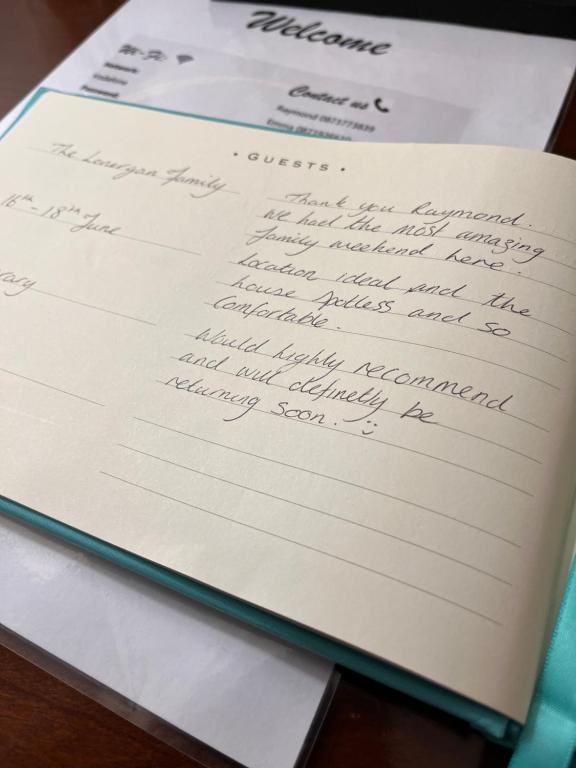 Welcome
Wi-Fi
Network:
Vodafone
Password:
Contact us
Raymond 0873773839
Emma
• GUESTS •
The Lonergan Family
16th - 18th June
rary
Thank you Raymond.
We had the most amazing
family weekend here.
Location ideal and the
house spotless and so
comfortable.
Would highly recommend
and will definetly be
returning soon. :)